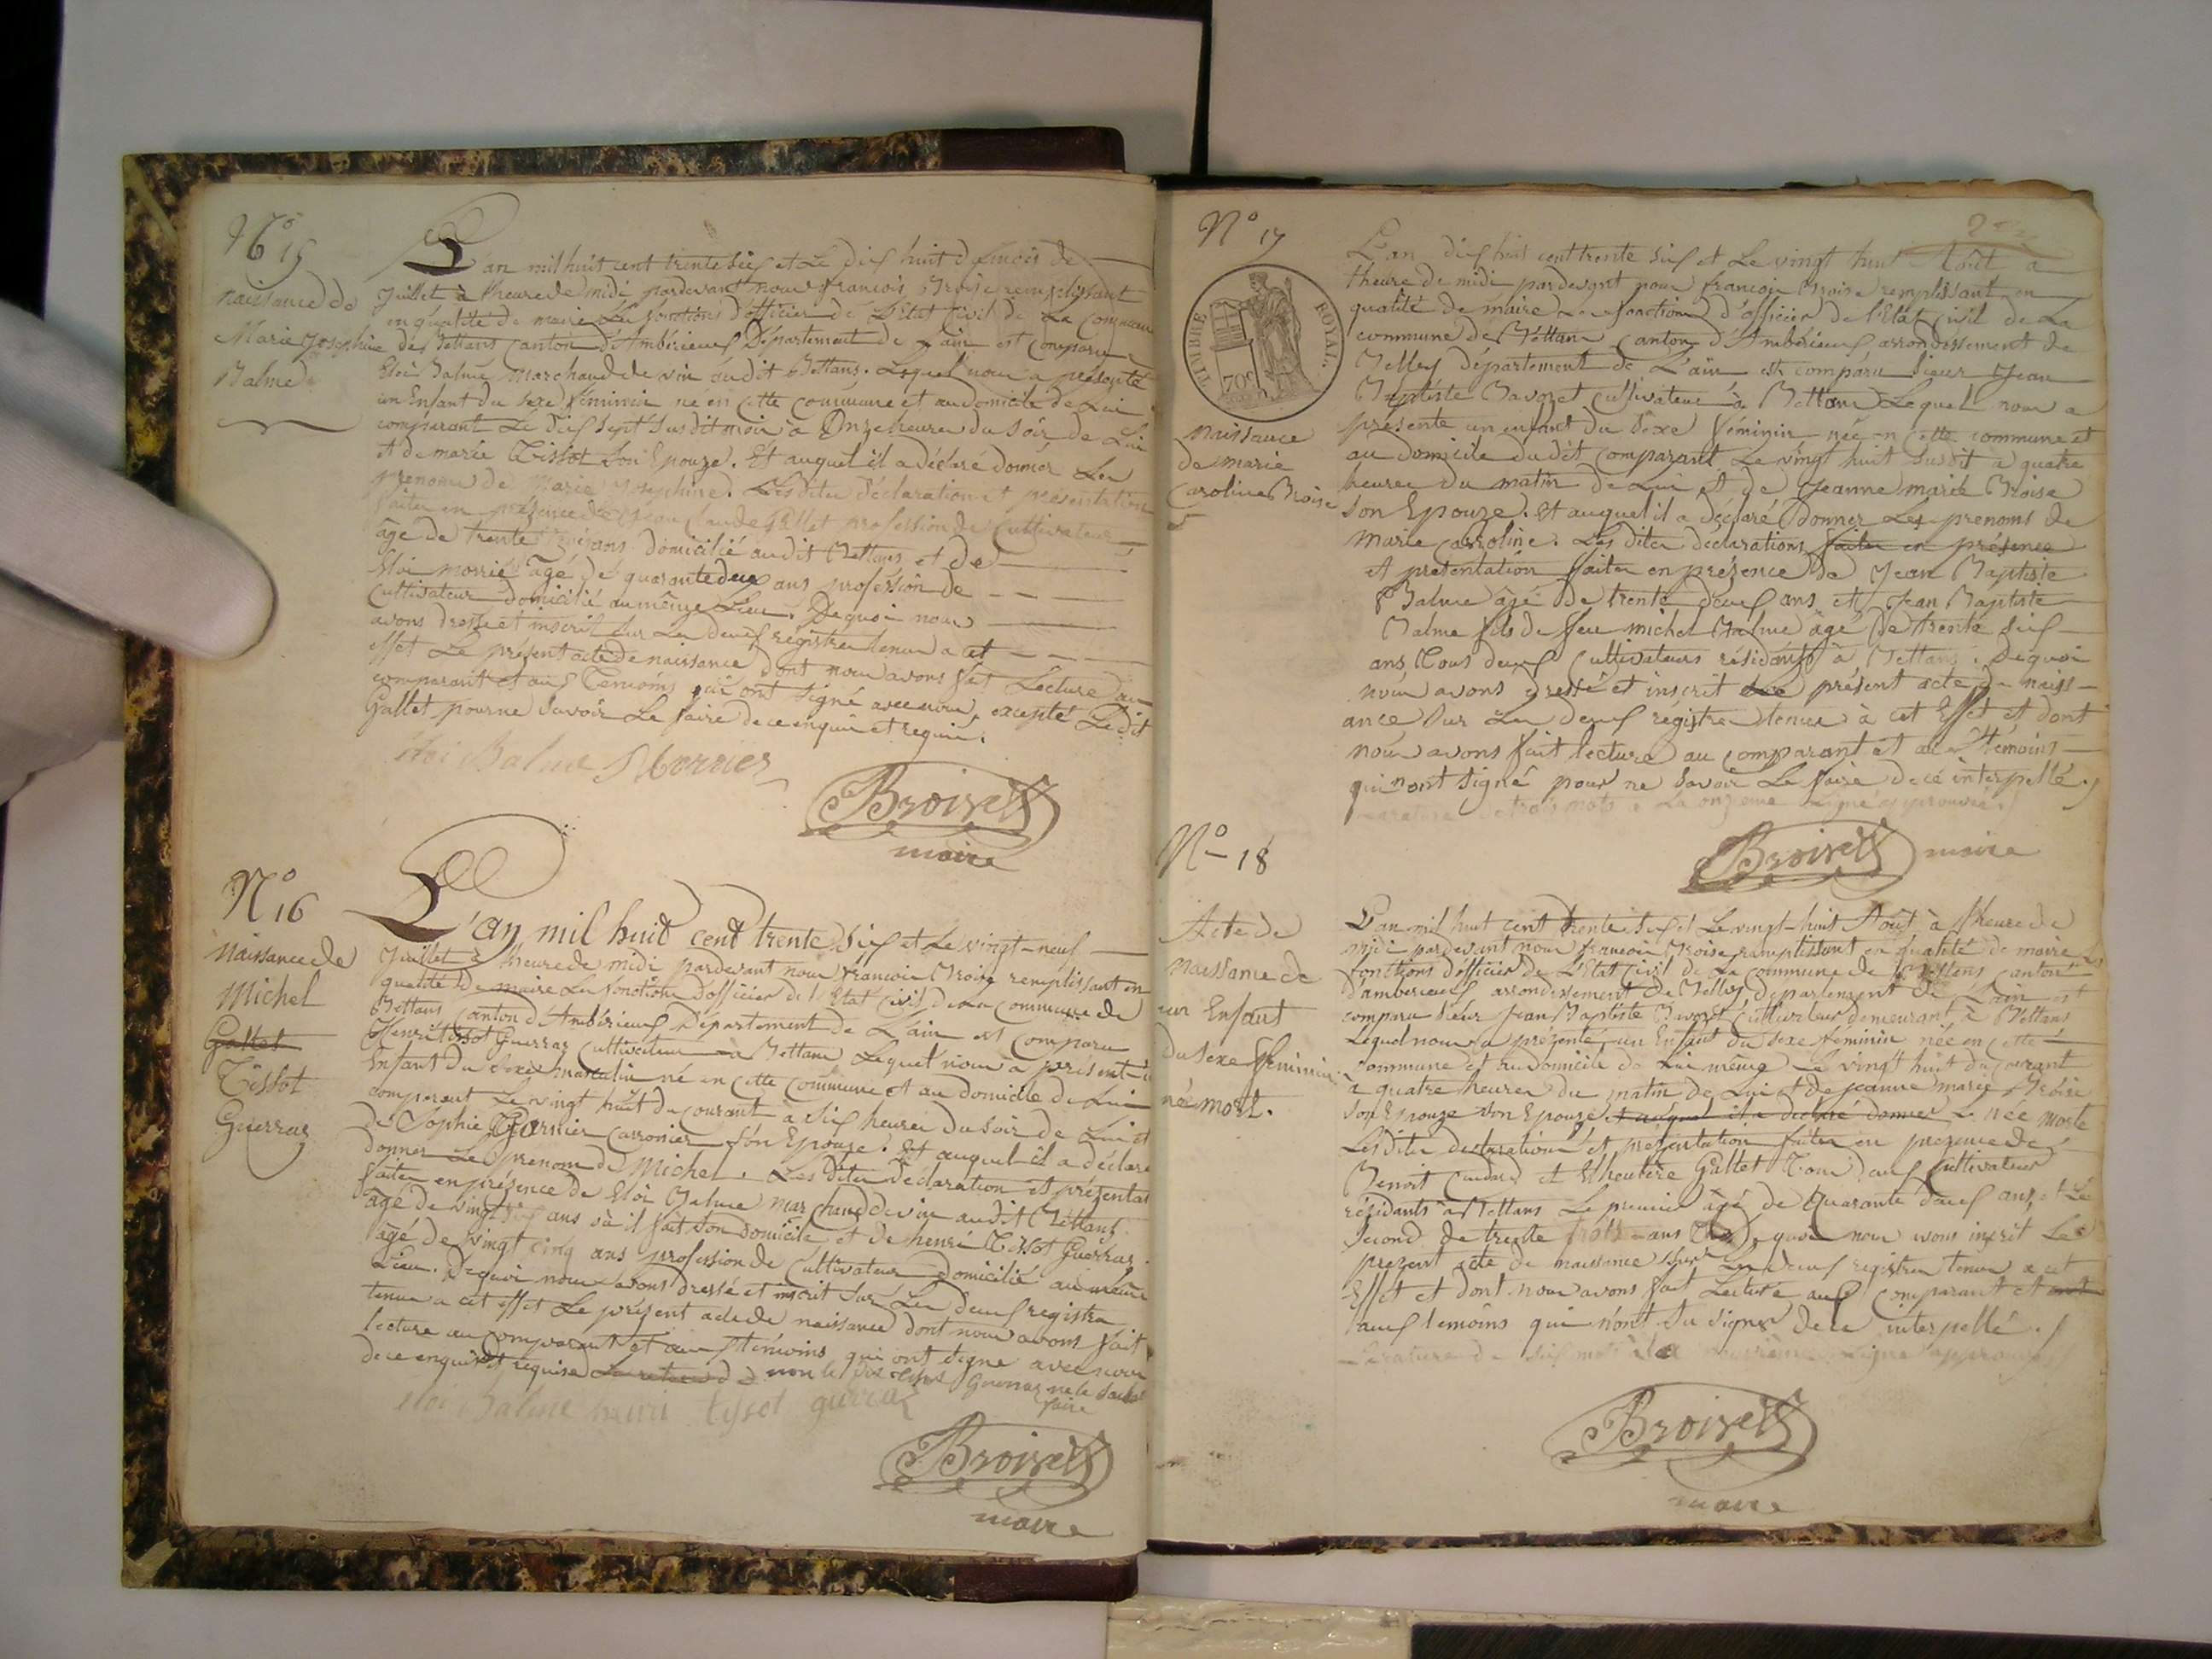 N.º 15
naissance de
Marie Josephine
Balme
L'an mil huit cent trente six et Le dix huit du mois de
Juillet à l'heure de midi pardevant nous françois Broise remplissant
en qualité de maire Les fonctions d'officier de L'Etat Civil de La Commune
des Bettans Canton d'Ambérieux Département de L'ain est comparu
Eloi Balme marchand de vin audit Bettans. Lequel nous a présenté
un Enfant du Sexe féminin né en Cette Commune et au domicile de Lui
comparant Le dix sept Susdit mois à Onze heures du Soir de Lui
et de marie Tissot Son Epouze. Et auquel il a déclaré donner Les
prenoms de Marie Josephine. Lesdites déclaration et présentation
faites en présence de Jean Claude Gallet profession de Cultivateur
âgé de trente ans domicilié audit Bettans et de
Eloi morrier âgé de quarante deux ans profession de
Cultivateur domicilié au même Lieu. Dequoi nous
avons dressé et inscrit sur Les deux registres tenus a cet
effet Le présent acte de naissance dont nous avons fait Lecture au
comparant et aux Temoins qui ont signé avec nous, excepté Ledit
Gallet pour ne Savoir Le faire de ce enquis et requis.
Eloi Balme Morrier
Broise
maire
N.º 16
Naissance de
Michel
Gallet
Tissot
Guerraz
L'an mil huit cent trente Six et Le vingt-neuf
Juillet à l'heure de midi pardevant nous francois Broise remplissant en
qualité de maire Les fonctions d'officier de l'Etat Civil de La Commune de
Bettans Canton d'Ambérieux Département de L'ain est comparu
Henri Tissot Guerraz Cultivateur à Bettans Lequel nous a présenté un
Enfant du Sexe masculin né en Cette Commune et au domicile de Lui
comparant Le vingt huit du courant à Six heures du Soir de Lui et
de Sophie Garnier Carronier Son Epouze. Et auquel il a déclaré
donner Le prenom de Michel. Les dites déclaration et présentat
faites en présence de Eloi Balme marchand de vin audit Bettans
âgé de vingt ans où il fait Son domicile et de henri Tissot Guerraz
âgé de vingt cinq ans profession de Cultivateur domicilié au même
Lieu. Dequoi nous avons dressé et inscrit Sur Les deux registres
tenus a cet effet Le présent acte de naissance dont nous avons fait
lecture au comparant et aux témoins qui ont signé avec nous
de ce enquis et requise non le Guerraz ne le Savoir
faire
Eloi Balme henri tissot guerraz
Broise
maire
N.º 17
TIMBRE ROYAL.
70c
naissance
de marie
Caroline Broise
L'an dix huit cent trente Six et Le vingt huit Août à
l'heure de midi pardevant nous francois Broise remplissant en
qualité de maire Les fonctions d'officier de l'Etat Civil de La
commune de Béttans Canton d'Ambérieux arrondissement de
Belley Département de L'ain est comparu Sieur Jean
Baptiste Bavozet Cultivateur à Bettans Lequel nous a
présenté un enfant du Sexe féminin née en Cette commune et
au domicile du dit comparant Le vingt huit Susdit à quatre
heures du matin de Lui et de Jeanne marie Broise
Son Epouze. Et auquel il a déclaré donner Les prenoms de
Marie Carroline. Les dites déclarations faites en présence
et présentation faites en présence de Jean Baptiste
Balme âgé de trente deux ans et Jean Baptiste
Balme fils de feu michel Balme âgé de trente Six
ans Tous deux Cultivateurs résidants à Bettans. Dequoi
nous avons dressé et inscrit Le présent acte de naiss-
ance Sur Les deux régistres tenus à cet Effet et dont
nous avons fait lecture au comparant et aux témoins
qui n'ont signé pour ne Savoir Le faire de ce interpellé.
rature de trois mots a La onzieme Ligne approuvé.
Broise maire
N.º 18
Acte de
naissance de
un Enfant
du Sexe féminin
né mort.
L'an mil huit cent trente Six et Le vingt-huit Août à l'heure de
midi pardevant nous francois Broise remplissant en qualité de maire Les
fonctions d'officier de L'Etat Civil de La Commune de Bettans Canton
d'amberieux arrondissement de Belley département de L'ain est
comparu Sieur Jean Baptiste Bavozet Cultivateur demeurant à Bettans
Lequel nous a présenté un Enfant du Sexe féminin née en Cette
Commune et au domicile de Lui même Le vingt huit du courant
à quatre heures du matin de Lui et de jeanne marie Broise
Son Epouze Son Epouze et auquel il a déclaré donner Le née morte
Les dites declarations et présentation faites en presence de
Benoit et Eleutère Gallet Tous deux Cultivateurs
résidants à Bettans Le premier âgé de Quarante deux ans, et Le
Second de trente trois ans dequoi nous avons inscrit Le
present acte de naissance Sur Les deux registres tenus a cet
Effet et dont nous avons fait Lecture aux Comparant et
aux témoins qui n'ont Su Signer de ce interpellé.
Rature de Six mots à La neuvième Ligne approuvé
Broise
maire